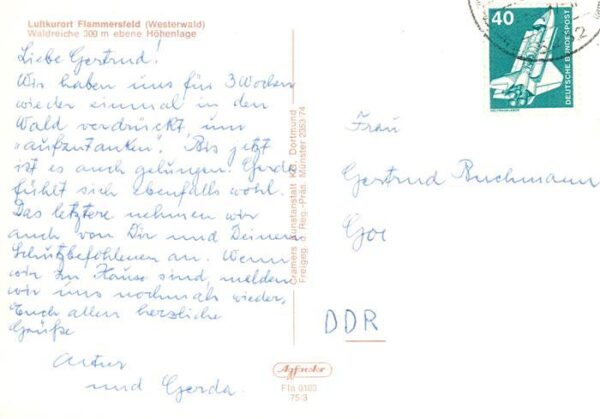 Luftkurort Flammersfeld (Westerwald)
Waldreiche 300 m ebene Höhenlage
Liebe Gertrud!
Wir haben uns für 3 Wochen
wieder einmal in den
Wald verdrückt, um
"aufzutanken". Bis jetzt
ist es auch gelungen. Gerda
fühlt sich ebenfalls wohl.
Das letztere nehmen wir
auch von Dir und Deinen
Schutzbefohlenen an. Wenn
wir zu Hause sind, melden
wir uns nochmals wieder,
Euch allen herzliche
Grüße
Artur
und Gerda.
Cramers Kunstanstalt KG, Dortmund
Freigeg. d. Reg.-Präs. Münster 2353/74
40
DEUTSCHE BUNDESPOST
Frau
Gertrud Buchmann
DDR
Fla 0183
75 3